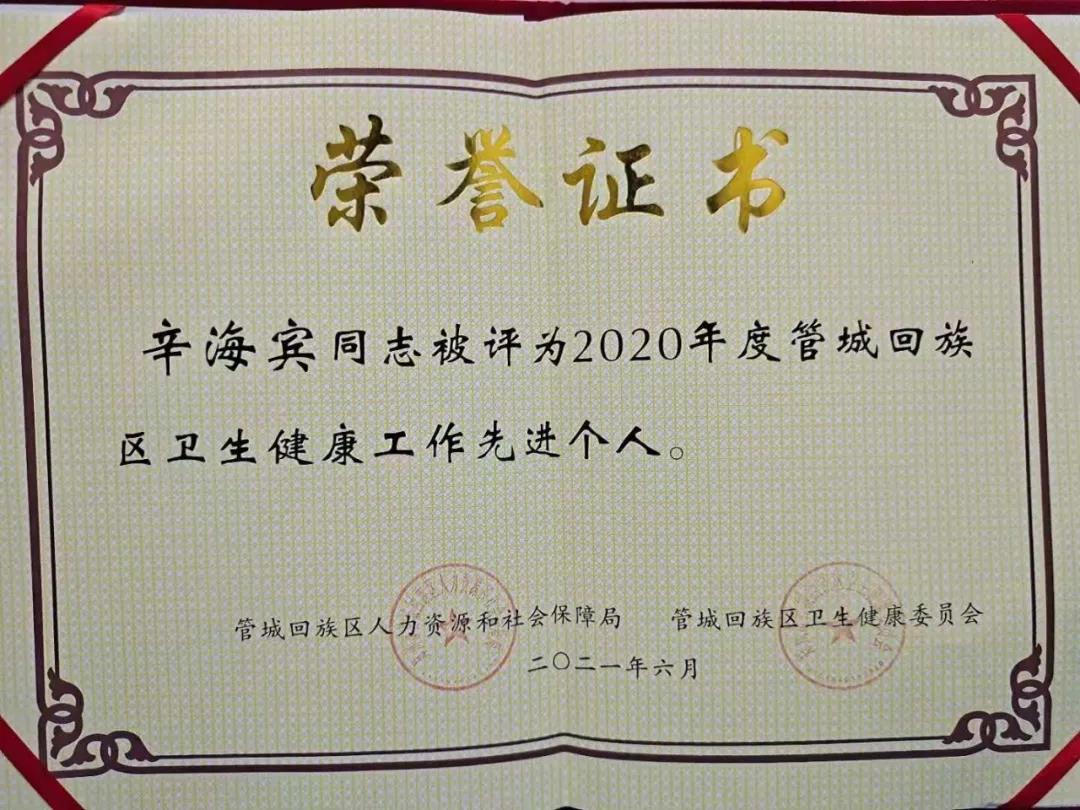 荣誉证书
辛海宾同志被评为2020年度管城回族
区卫生健康工作先进个人。
管城回族区人力资源和社会保障局 管城回族区卫生健康委员会
二〇二一年六月